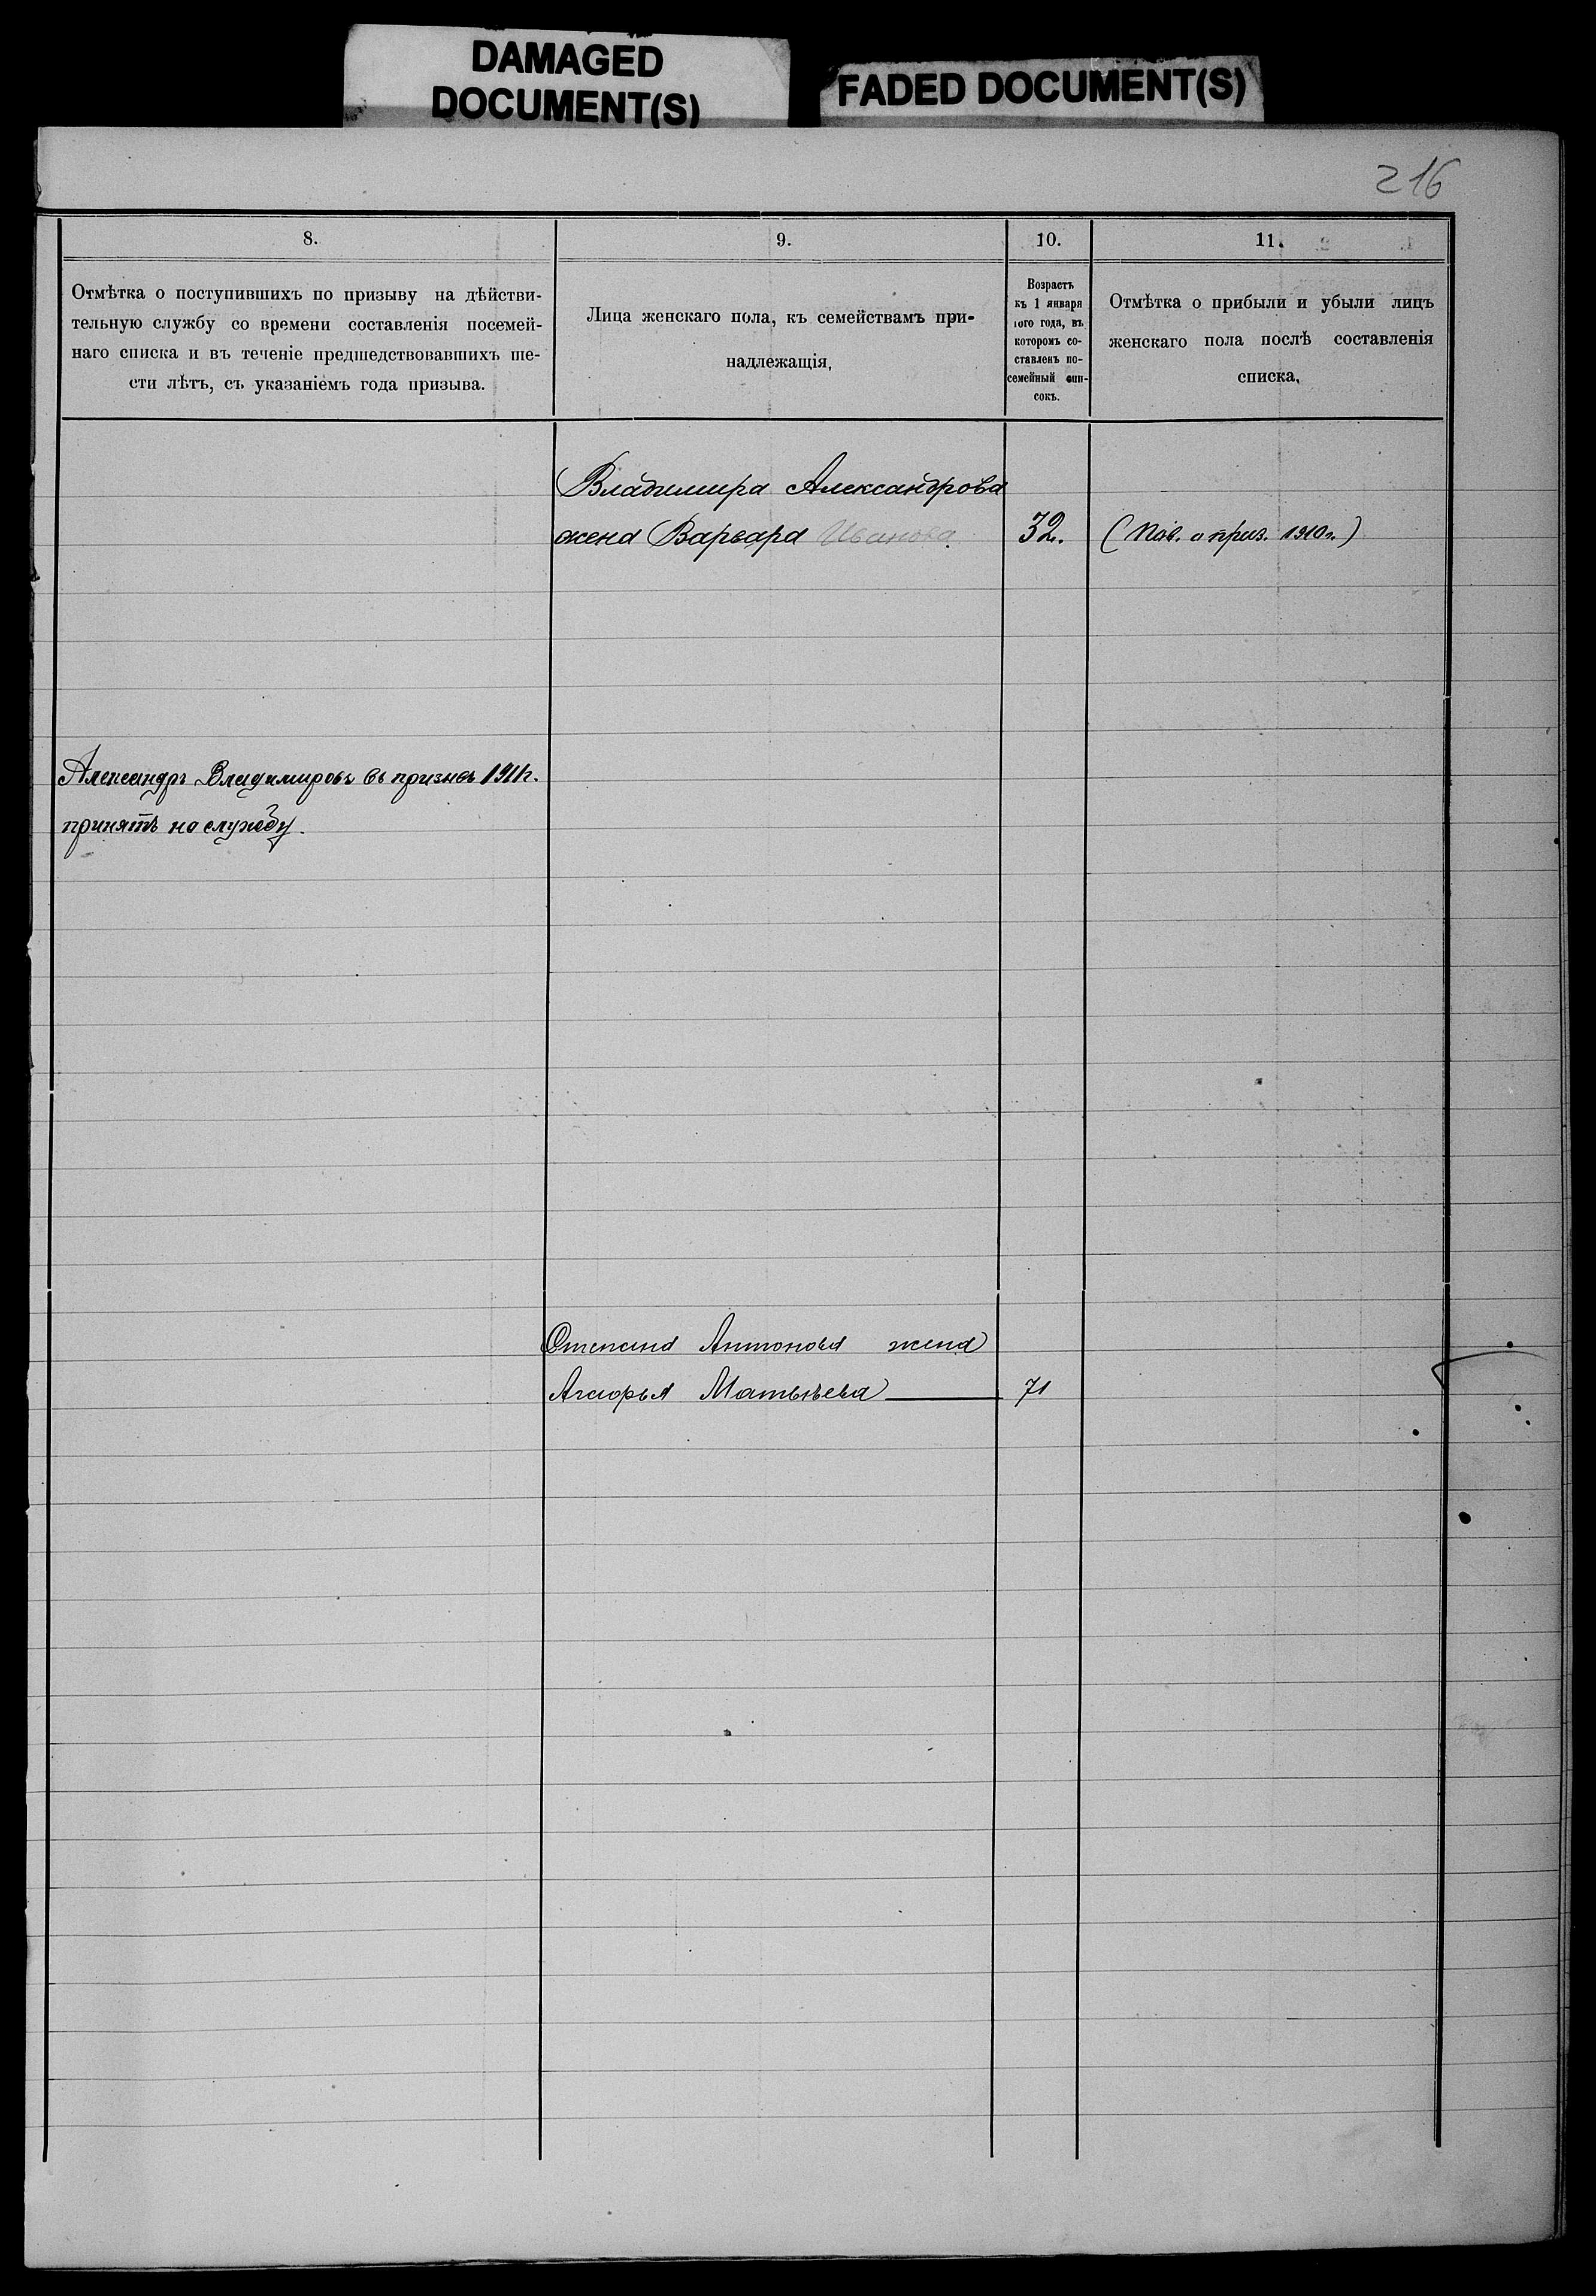 DAMAGED
DOCUMENT(S)
FADED DOCUMENT(S)
216
8.
Отмѣтка о поступившихъ по призыву на дѣйстви-
тельную службу со времени составленія посемей-
наго списка и въ теченіе предшедствовавшихъ ше-
сти лѣтъ, съ указаніемъ года призыва.
9.
Лица женскаго пола, къ семействамъ при-
надлежащія,
10.
Возрастъ
къ 1 января
того года, въ
которомъ со-
ставленъ по-
семейный спи-
сокъ.
11.
Отмѣтка о прибыли и убыли лицъ
женскаго пола послѣ составленія
списка,
Владимира Александрова
жена Варвара Иванова 32. ( о приз. 1910г.)
Александръ Владимировъ въ призывъ 1911г.
принятъ на службу.
Степана Антонова жена
Матвѣева 71